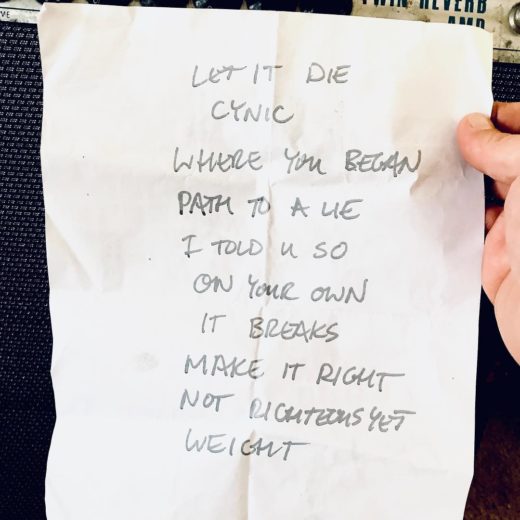 TWIN REVERB
AMP
LET IT DIE
CYNIC
WHERE YOU BEGAN
PATH TO A LIE
I TOLD U SO
ON YOUR OWN
IT BREAKS
MAKE IT RIGHT
NOT RIGHTEOUS YET
WEIGHT